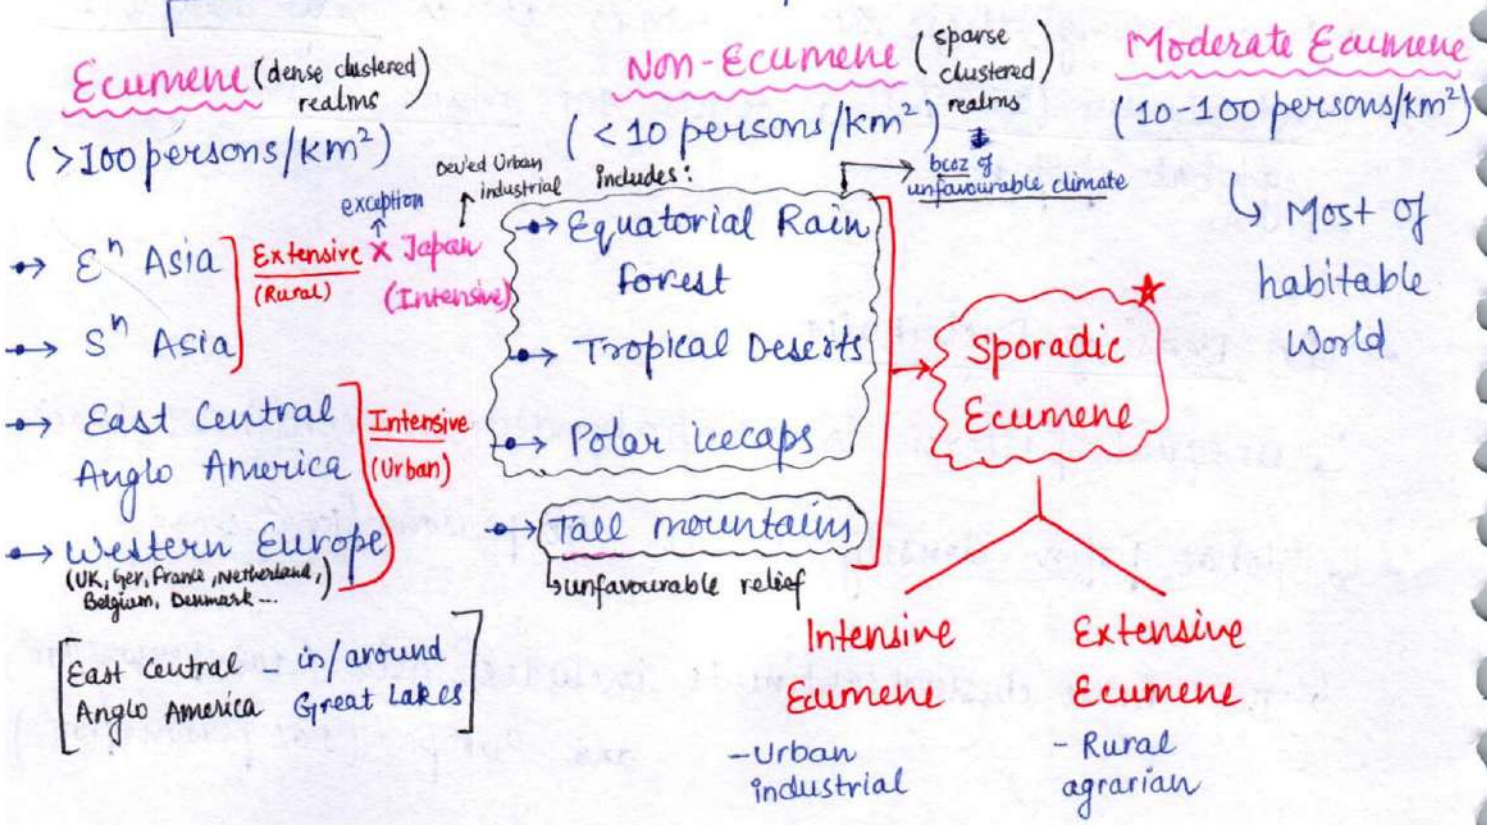 Ecumene (dense clustered realms)
(>100 persons/km²)
→ Eⁿ Asia
→ Sⁿ Asia
Extensive
(Rural)
exception
x Japan
(Intensive)
Dev'ed Urban
industrial
→ East Central
Anglo America
→ Western Europe
(UK, Ger, France, Netherland,
Belgium, Denmark ...)
Intensive
(Urban)
[East Central - in/around
Anglo America Great Lakes]
Non-Ecumene (sparse clustered realms)
(<10 persons/km²)
bcoz of
unfavourable climate
includes:
→ Equatorial Rain
forest
→ Tropical Deserts
→ Polar icecaps
→ Tall mountains
unfavourable relief
Sporadic
Ecumene
Intensive
Ecumene
- Urban
industrial
Extensive
Ecumene
- Rural
agrarian
Moderate Ecumene
(10-100 persons/km²)
Most of
habitable
World